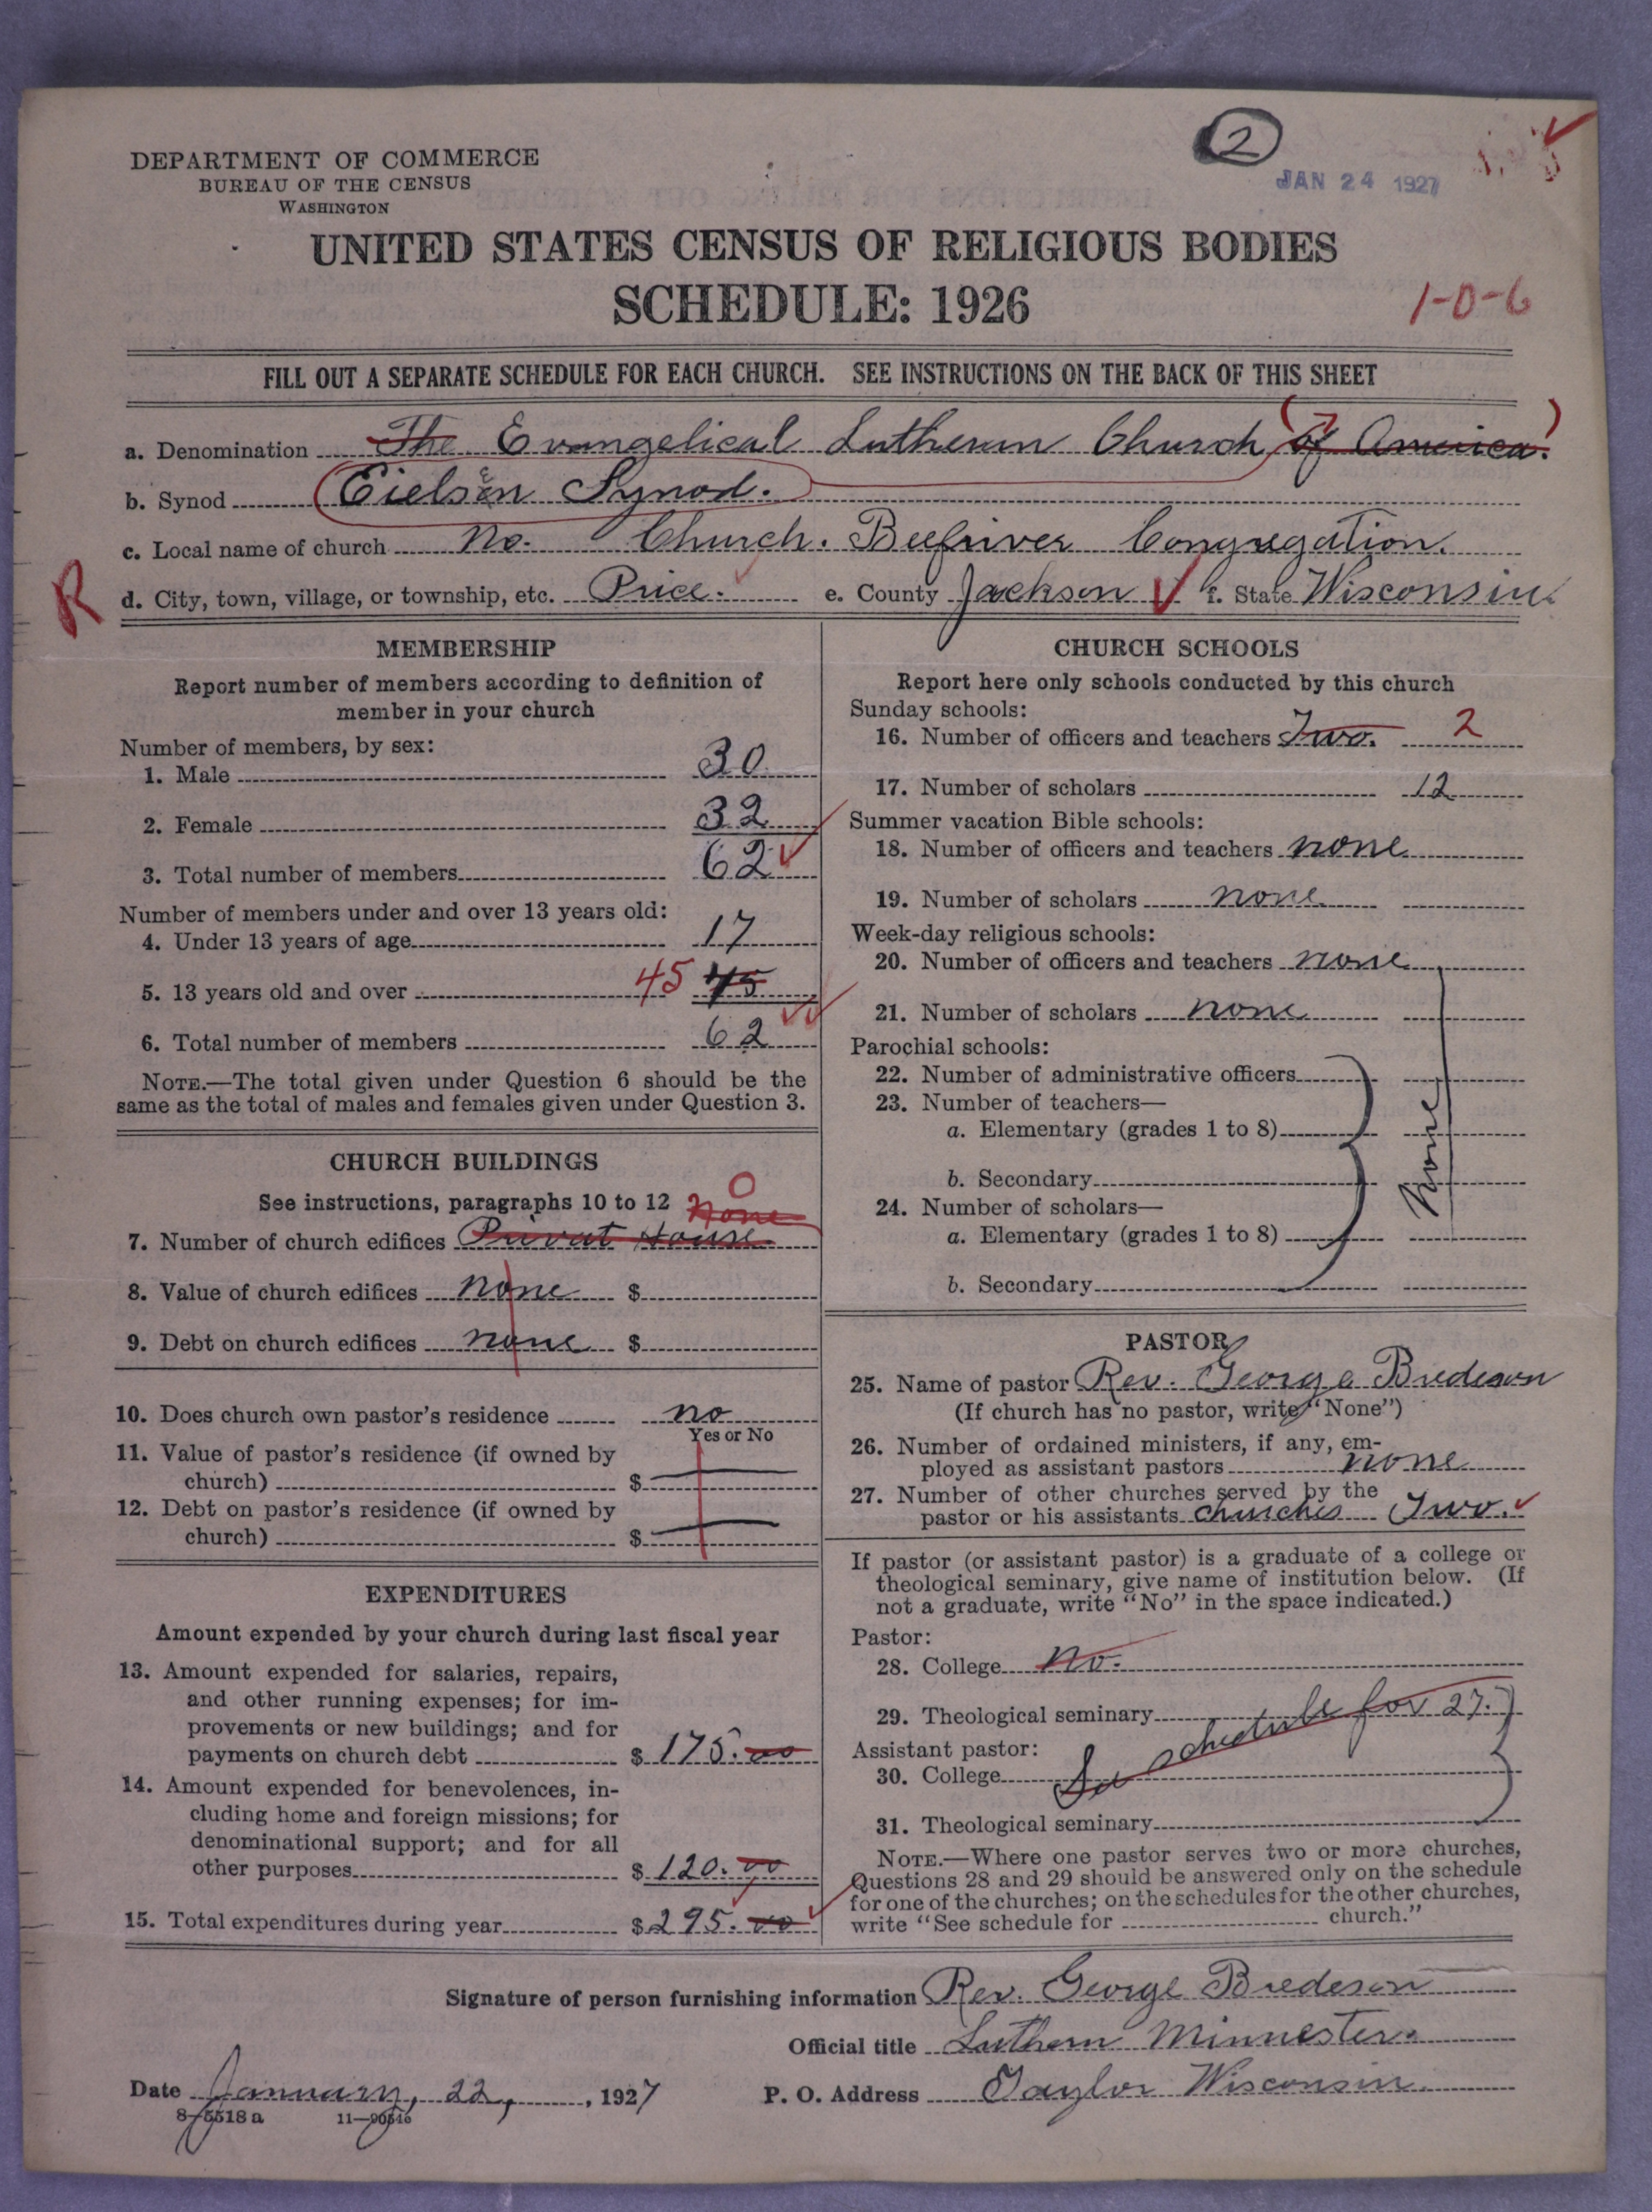 2
JAN 24 1927
DEPARTMENT OF COMMERCE
BUREAU OF THE CENSUS
WASHINGTON
UNITED STATES CENSUS OF RELIGIOUS BODIES
SCHEDULE: 1926
1-0-6
FILL OUT A SEPARATE SCHEDULE FOR EACH CHURCH. SEE INSTRUCTIONS ON THE BACK OF THIS SHEET
a. Denomination The Evangelical Lutheran Church of America.
b. Synod Eielsen Synod.
c. Local name of church No. Church. Beefriver Congregation.
R
d. City, town, village, or township, etc. Price. e. County Jackson f. State Wisconsin.
MEMBERSHIP
Report number of members according to definition of
member in your church
Number of members, by sex:
1. Male 30
2. Female 32
3. Total number of members 62
Number of members under and over 13 years old:
4. Under 13 years of age 17
5. 13 years old and over 45 45
6. Total number of members 62
NOTE.—The total given under Question 6 should be the
same as the total of males and females given under Question 3.
CHURCH BUILDINGS
See instructions, paragraphs 10 to 12 None 0
7. Number of church edifices Privat House
8. Value of church edifices none $
9. Debt on church edifices none $
10. Does church own pastor's residence no
Yes or No
11. Value of pastor's residence (if owned by
church) $
12. Debt on pastor's residence (if owned by
church) $
EXPENDITURES
Amount expended by your church during last fiscal year
13. Amount expended for salaries, repairs,
and other running expenses; for im-
provements or new buildings; and for
payments on church debt $ 175.00
14. Amount expended for benevolences, in-
cluding home and foreign missions; for
denominational support; and for all
other purposes $ 120.00
15. Total expenditures during year $ 295.00
CHURCH SCHOOLS
Report here only schools conducted by this church
Sunday schools:
16. Number of officers and teachers Two. 2
17. Number of scholars 12
Summer vacation Bible schools:
18. Number of officers and teachers none
19. Number of scholars none
Week-day religious schools:
20. Number of officers and teachers none
21. Number of scholars none
Parochial schools:
22. Number of administrative officers
23. Number of teachers—
a. Elementary (grades 1 to 8)
b. Secondary
None
24. Number of scholars—
a. Elementary (grades 1 to 8)
b. Secondary
PASTOR
25. Name of pastor Rev. George Bredeson
(If church has no pastor, write "None")
26. Number of ordained ministers, if any, em-
ployed as assistant pastors none
27. Number of other churches served by the
pastor or his assistants churches Two.
If pastor (or assistant pastor) is a graduate of a college or
theological seminary, give name of institution below. (If
not a graduate, write "No" in the space indicated.)
Pastor:
28. College No.
29. Theological seminary
Assistant pastor:
See schedule for 27.
30. College
31. Theological seminary
NOTE.—Where one pastor serves two or more churches,
Questions 28 and 29 should be answered only on the schedule
for one of the churches; on the schedules for the other churches,
write "See schedule for church."
Signature of person furnishing information Rev. George Bredeson
Official title Luthern Minnester.
Date January, 22, , 1927 P. O. Address Taylor Wisconsin.
8-5518a 11-90546